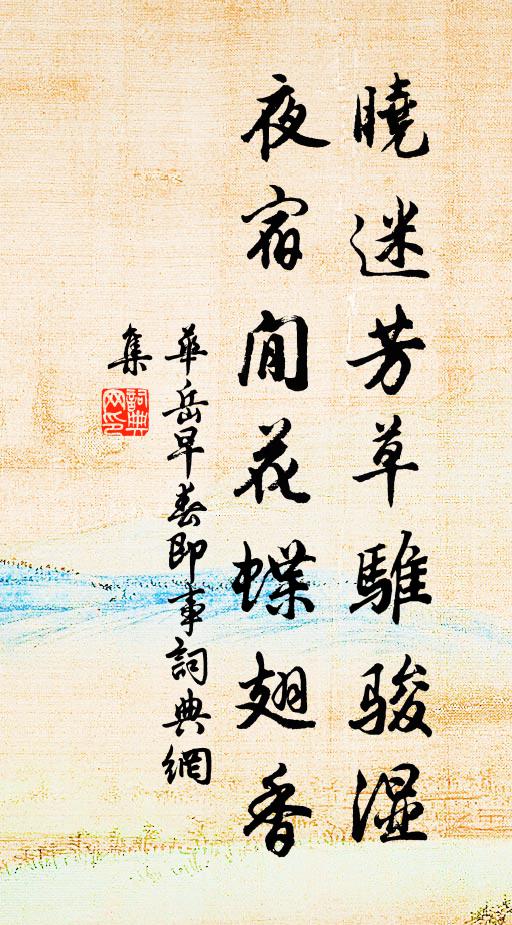 曉迷芳草騅駿湿
夜宿閒花蝶翅香
華岳早春即事詞典網
集
詞典網印